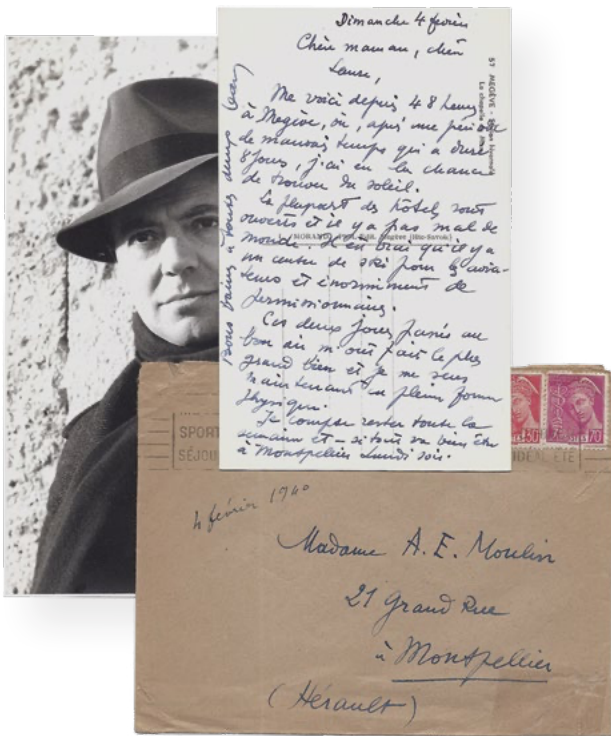 Dimanche 4 février
Chère maman, chère
Laure,
Me voici depuis 48 heures
à Megève, où, après une période
de mauvais temps qui a duré
8 jours, j'ai eu la chance
de trouver du soleil.
La plupart des hôtels sont
ouverts et il y a pas mal de
monde. Il est vrai qu'il y a
un centre de ski pour les avia-
teurs et énormément de
permissionnaires.
Ces deux jours passés au
bon air m'ont fait le plus
grand bien et je me sens
maintenant en pleine forme
physique.
Je compte rester toute la
semaine et - si tout va bien être
à Montpellier Lundi soir.
Bons baisers à toutes deux Jean
57 MEGÈVE
La chapelle
Megève (Hte-Savoie)
SPORT
SÉJOU
IDÉAL ÉTÉ
50
70
4 février 1940
Madame A. E. Moulin
21 Grand Rue
à Montpellier
(Hérault)